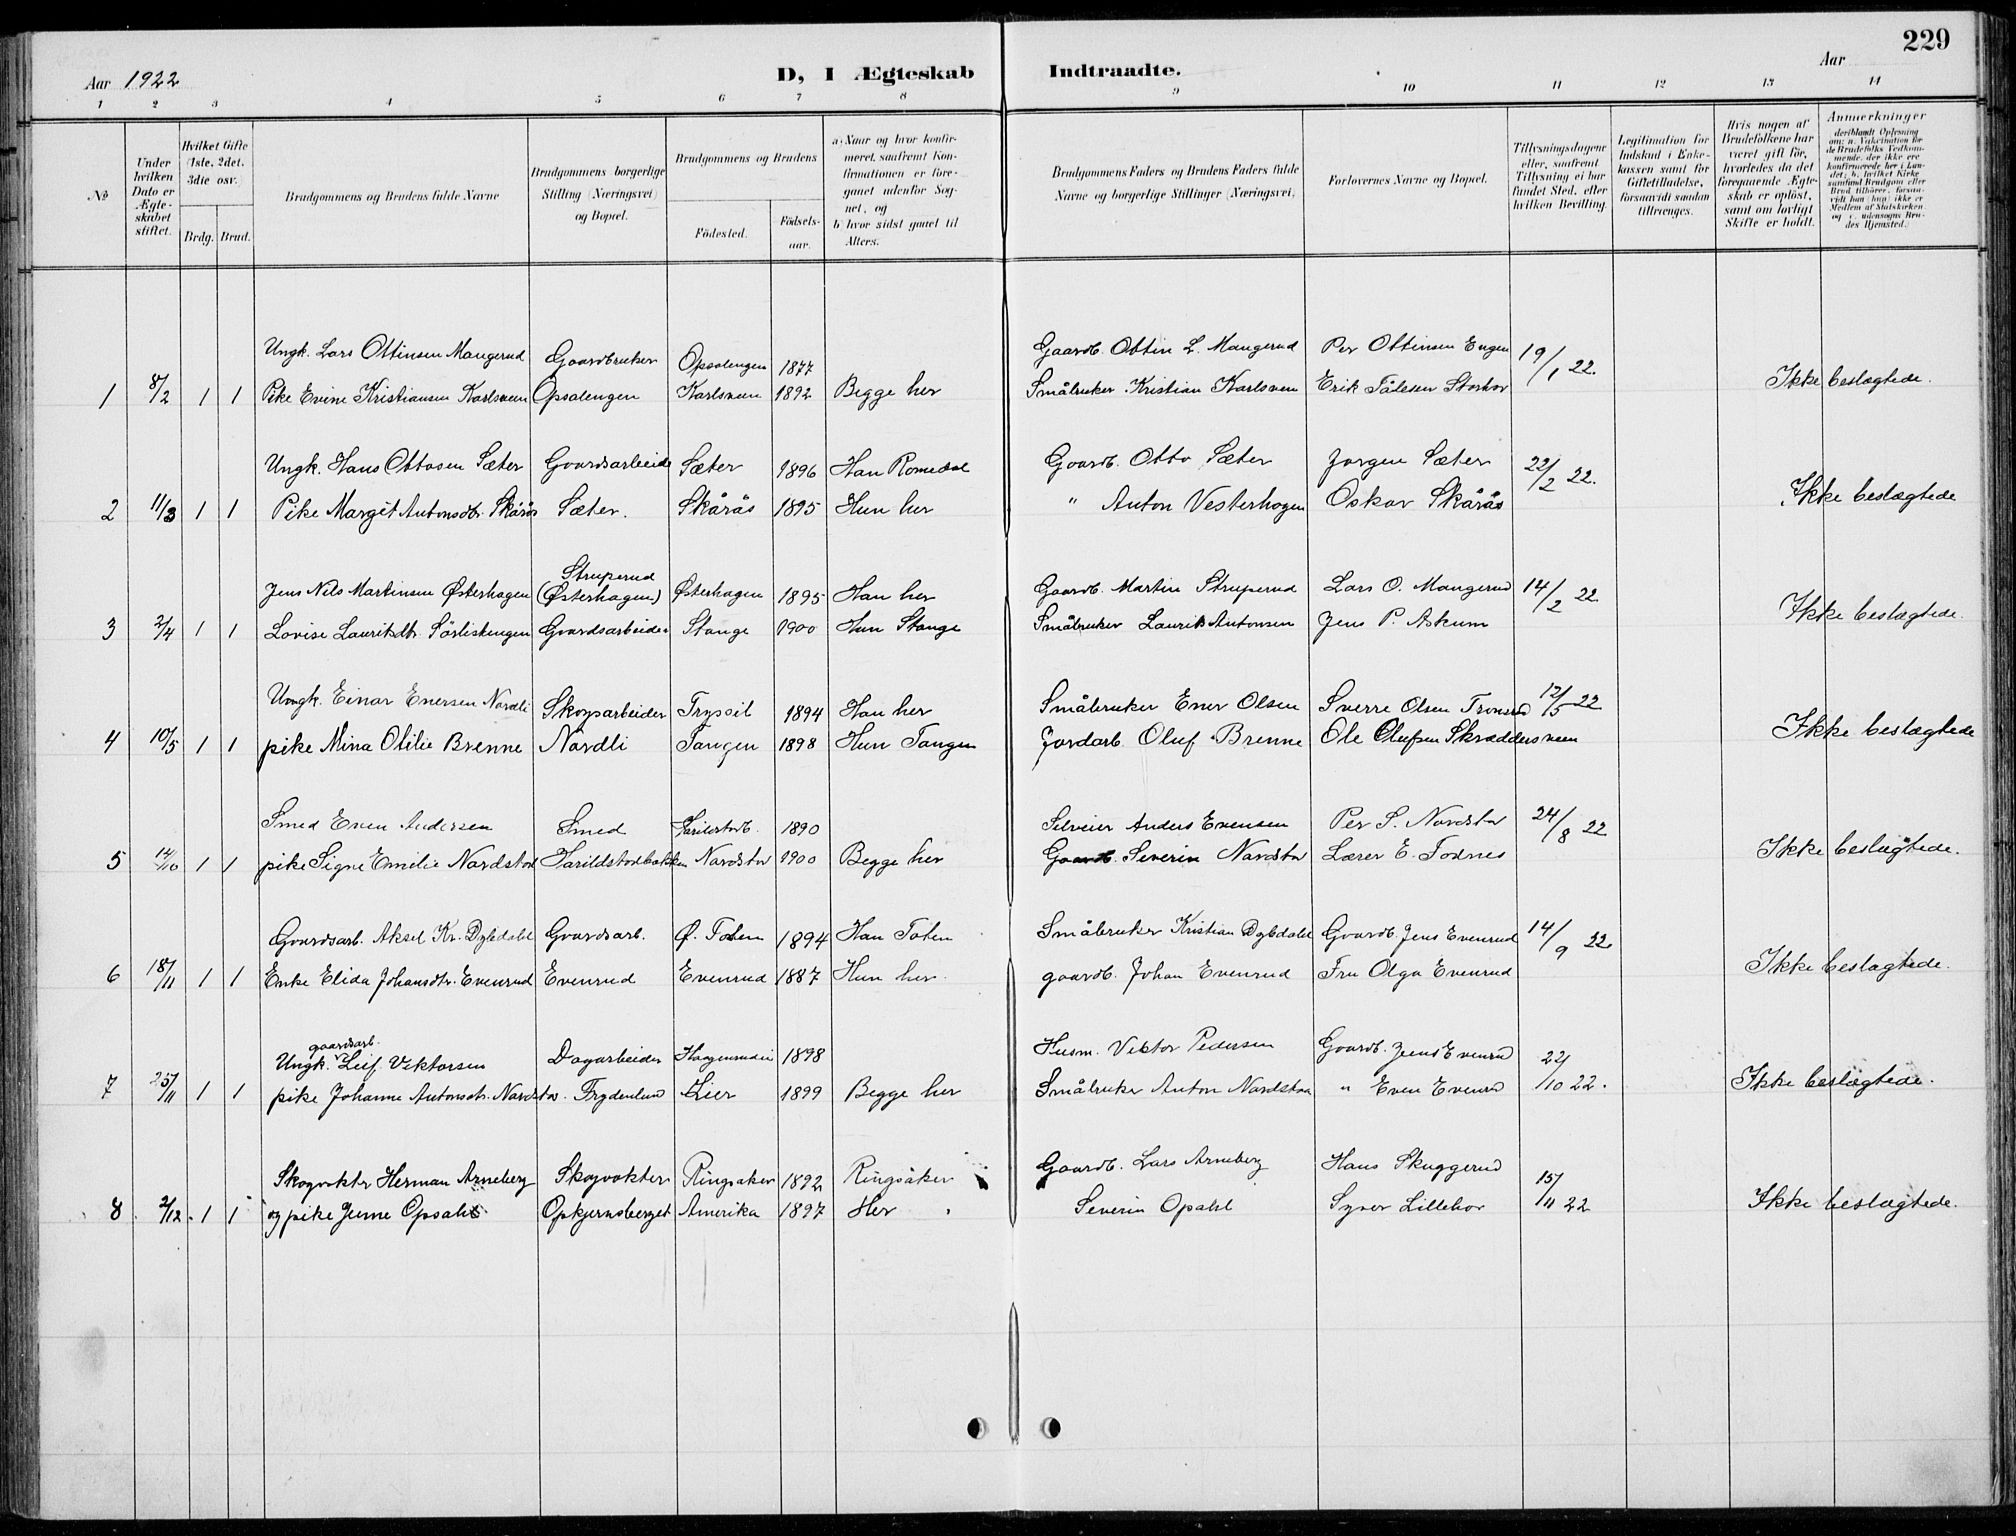 229
Aar 1922 D, I Ægteskab Indtraadte. Aar
1 2 3 4 5 6 7 8 9 10 11 12 13 14
No
Under hvilken Dato er Ægteskabet stiftet.
Hvilket Gifte (1ste, 2det, 3die osv.)
Brdg. Brud.
Brudgommens og Brudens fulde Navne
Brudgommens borgerlige Stilling (Næringsvei) og Bopæl.
Brudgommens og Brudens
Fødested. Fødselsaar.
a) Naar og hvor konfirmeret, saafremt Konfirmationen er foregaaet udenfor Sognet, og
b) hvor sidst gaaet til Alters.
Brudgommens Faders og Brudens Faders fulde Navne og borgerlige Stillinger (Næringsvei)
Forlovernes Navne og Bopæl.
Tillysningsdagene eller, saafremt Tillysning ei har fundet Sted, efter hvilken Bevilling.
Legitimation for Indskud i Enkekassen samt for Giftetilladelse, forsaavidt saadan tiltrænges.
Hvis nogen af Brudefolkene har været gift før, hvorledes da det foregaaende Ægteskab er opløst, samt om lovligt Skifte er holdt.
Anmærkninger
Ungk. Lars Ottinsen Mangerud Gaardbruker Opsalengen 1877 Gaardb. Ottin L. Mangerud Per Ottinsen Engen 19/1 22.
1 8/2 1 1 Pike Evine Kristiansen Karlsveen Opsalengen Karlsveen 1892 Begge her Småbruker Kristian Karlsveen Erik Pålesen Storhov Ikke beslægtede.
Ungk. Hans Ottosen Sæter Gaardsarbeide Sæter 1896 Han Romedal Gaardb. Otto Sæter Jørgen Sæter 22/2 22.
2 11/3 1 1 Pike Margit Antonsdtr. Skårås Sæter. Skårås 1895 Hun her " Anton Vesterhagen Oskar Skårås Ikke beslægtede
Struperud
Jens Nils Martinsen Østerhagen (Østerhagen) Østerhagen 1895 Han her Gaardb. Martin Struperud Lars O. Mangerud 14/2 22
3 2/4 1 1 Lovise Lauritsdtr. Sörliskengen Gaardsarbeider Stange 1900 Hun Stange Småbruker Laurits Antonsen Jens P. Askum Ikke beslægtede.
Ungk. Einar Enersen Nordli Skogsarbeider Trysil 1894 Han her Småbruker Ener Olsen Sverre Olsen 12/5 22
4 10/5 1 1 pike Mina Otilie Brenne Nordli Tangen 1898 Hun Tangen Jordarb. Oluf Brenne Ole Olufsen Skræddersveen Ikke beslægtede
Smed Even Andersen Smed Harildstadb. 1890 Selveier Anders Evensen Per S. Nordstor 24/8 22
5 14/10 1 1 pike Signe Emilie Nordstad Harildstadbakken Nordstor 1900 Begge her Gaardb. Severin Nordstor Lærer E. Fodnes Ikke beslægtede.
Gaardsarb. Aksel Kr. Dybdahl Gaardsarb. Ø. Toten 1894 Han Toten Småbruker Kristian Dybdahl Gaardb. Jens Evenrud 14/9 22
6 18/11 1 1 Enke Elida Johansdtr. Evenrud Evenrud Evenrud 1887 Hun her. gaardb. Johan Evenrud Fru Olga Evenrud Ikke beslægtede.
gaardsarb.
Ungk. Leif Viktorsen Dagarbeider 1898 Husm. Viktor Pedersen Gaardb. Jens Evenrud 22/10 22.
7 25/11 1 1 pike Johanne Antonsdtr. Nordstor. Frydenlund Lier 1899 Begge her Småbruker Anton Nordstor " Even Evenrud Ikke beslægtede.
Skogvokter Herman Arneberg Skogvokter Ringsaker 1892 Ringsaker Gaardb. Lars Arneberg Hans Skuggerud 15/11 22
8 2/12 1 1 og pike Jenne Opsahl Opkjernsberget Amerika 1897 Her Severin Opsahl Syver Lillehov Ikke beslægtede.